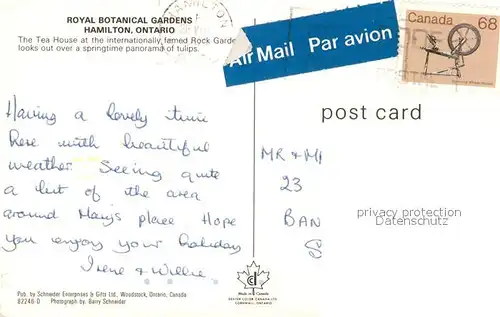 ROYAL BOTANICAL GARDENS
HAMILTON, ONTARIO
The Tea House at the internationally famed Rock Garde
looks out over a springtime panorama of tulips.
HAMILTON
Air Mail Par avion
Canada 68
post card
Having a lovely time
here with beautiful
weather. Seeing quite
a bit of the area
around Mary's place. Hope
you enjoy your holiday
Irene & Willie.
MR & M
23
BAN
S
privacy protection
Datenschutz
Made in Canada
DEXTER COLOR CANADA LTD
CORNWALL, ONTARIO
Pub. by Schneider Enterprises & Gifts Ltd., Woodstock, Ontario, Canada
82246-D Photograph by Barry Schneider